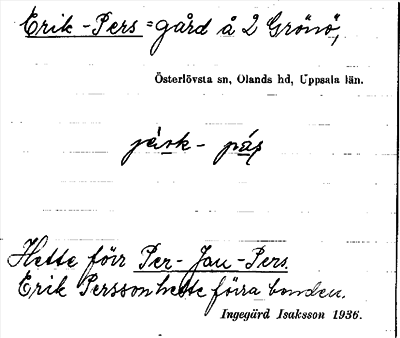 Erik-Pers = gård å 2 Grönö,
Österlövsta sn, Olands hd, Uppsala län.
Hette förr Per-Jan-Pers.
Erik Persson hette förra bonden.
Ingegärd Isaksson 1936.